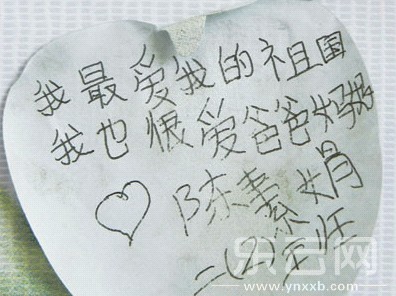 我最爱我的祖国
我也恨爱爸爸妈妈
陈素娟
二
乐云网
www.ynxxb.com